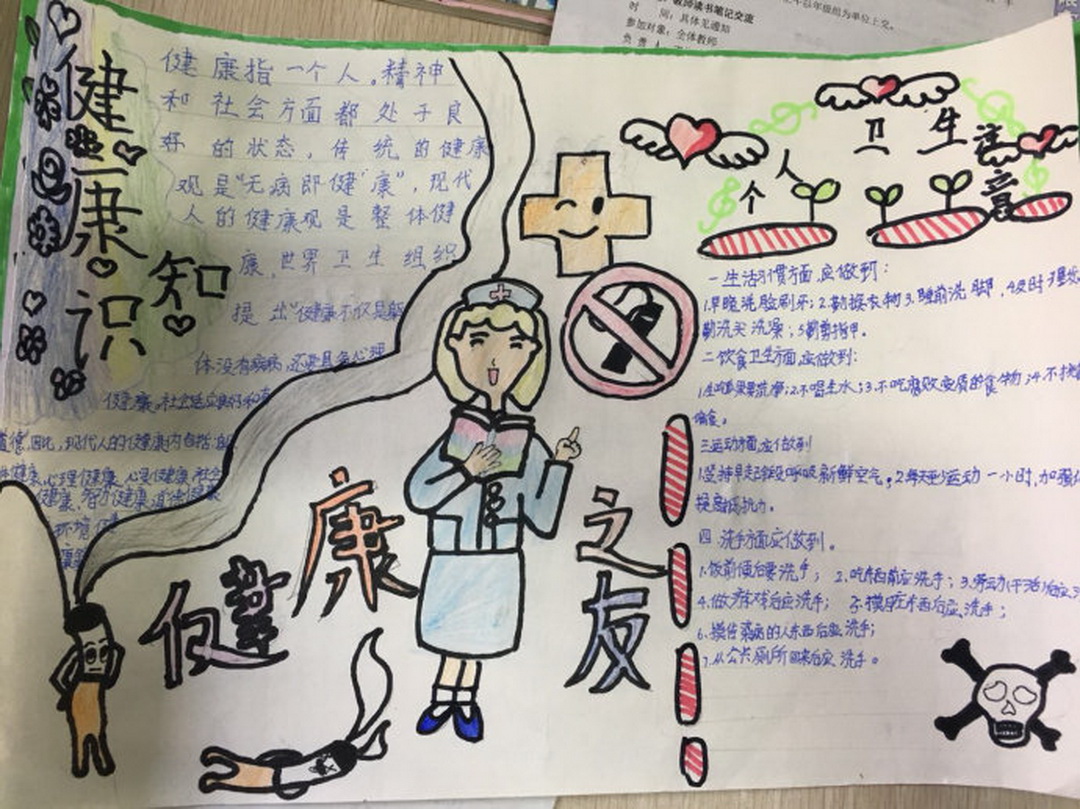 教师读书笔记交流
时 间：具体见通知
参加对象：全体教师
健康知识
健康指一个人。精神
和社会方面都处于良
好的状态，传统的健康
观是“无病即健康”，现代
人的健康观是整体健
康，世界卫生组织
提出“健康不仅是躯
体没有疾病，还要具备心理
健康、社会适应良好和有
道德，因此，现代人的健康内包括
健康、心理健康、心灵健康、社会
健康、智力健康、道德健康
环境健
健康之友
个人卫生注意
一生活习惯方面应做到：
1.早晚洗脸刷牙；2.勤换衣物3.睡前洗脚，4及时理发
勤洗头洗澡；5勤剪指甲。
二饮食卫生方面应做到：
2不喝生水；3.不吃腐败变质的食物；4.不挑
偏食。
三运动方面应做到
1.坚持早起锻呼吸新鲜空气，2每天至少运动一小时，加强
提高抵抗力。
四.洗手方面应做到。
1.饭前便后要洗手；2.吃东西前应洗手；3.劳动(干活)后应
4.做游戏后应洗手；5.摸脏东西后应洗手；
6.摸传染病的人东西后应洗手；
7.从公共厕所回来后应洗手。